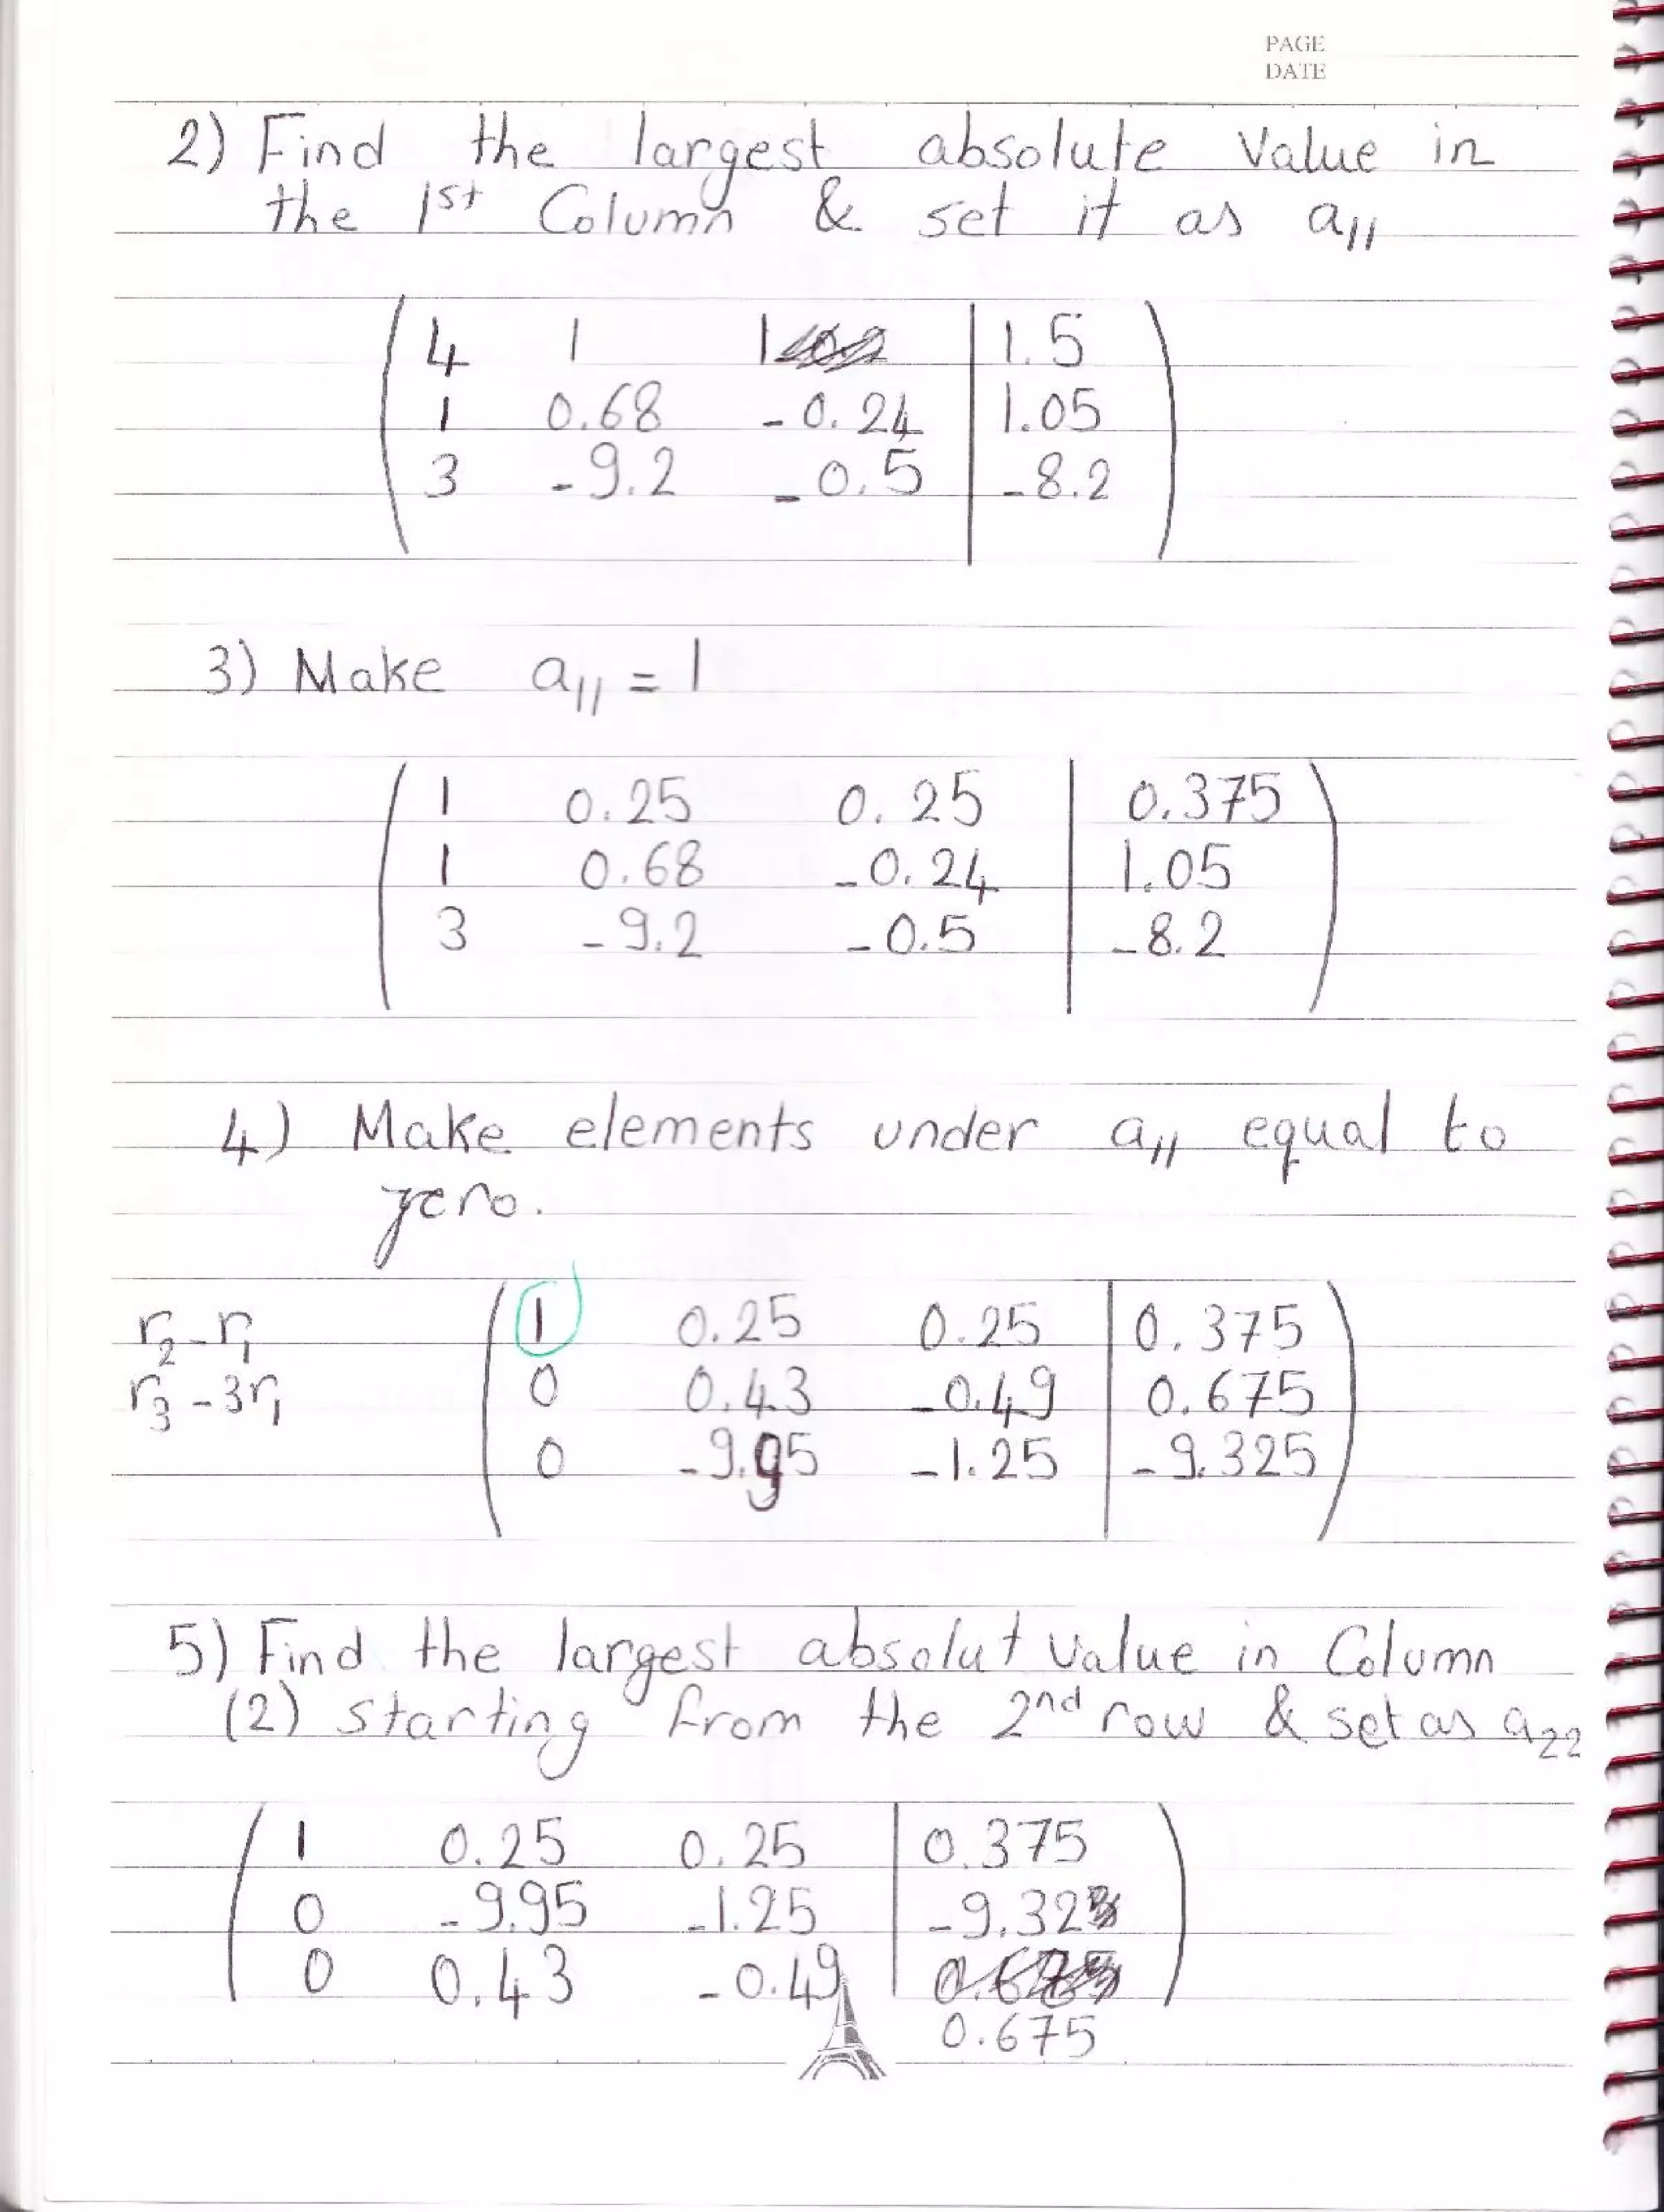 PAGE
DATE
2) Find the largest absolute Value in
the 1st Column & set it as a11
4 1 1 1.5
1 0.68 -0.24 1.05
3 -9.2 -0.5 -8.2
3) Make a11 = 1
1 0.25 0.25 0.375
1 0.68 -0.24 1.05
3 -9.2 -0.5 -8.2
4) Make elements under a11 equal to
zero.
r2-r1 1 0.25 0.25 0.375
r3-3r1 0 0.43 -0.49 0.675
0 -9.95 -1.25 -9.325
5) Find the largest absolut value in Column
(2) starting from the 2nd row & set as a22
1 0.25 0.25 0.375
0 -9.95 -1.25 -9.32
0 0.43 -0.49
0.675